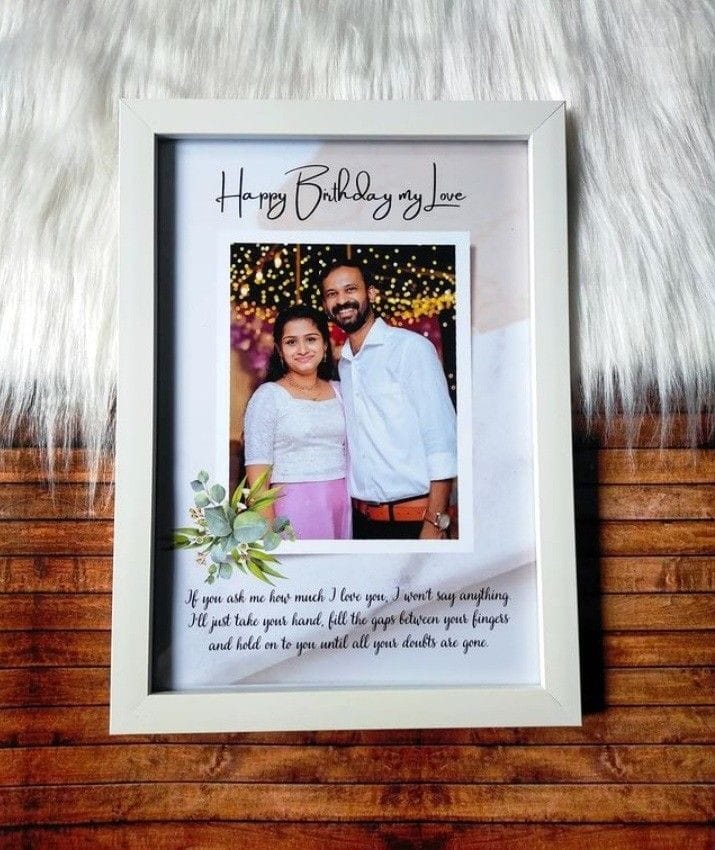 Happy Birthday my Love
If you ask me how much I love you, I won't say anything.
I'll just take your hand, fill the gaps between your fingers
and hold on to you until all your doubts are gone.